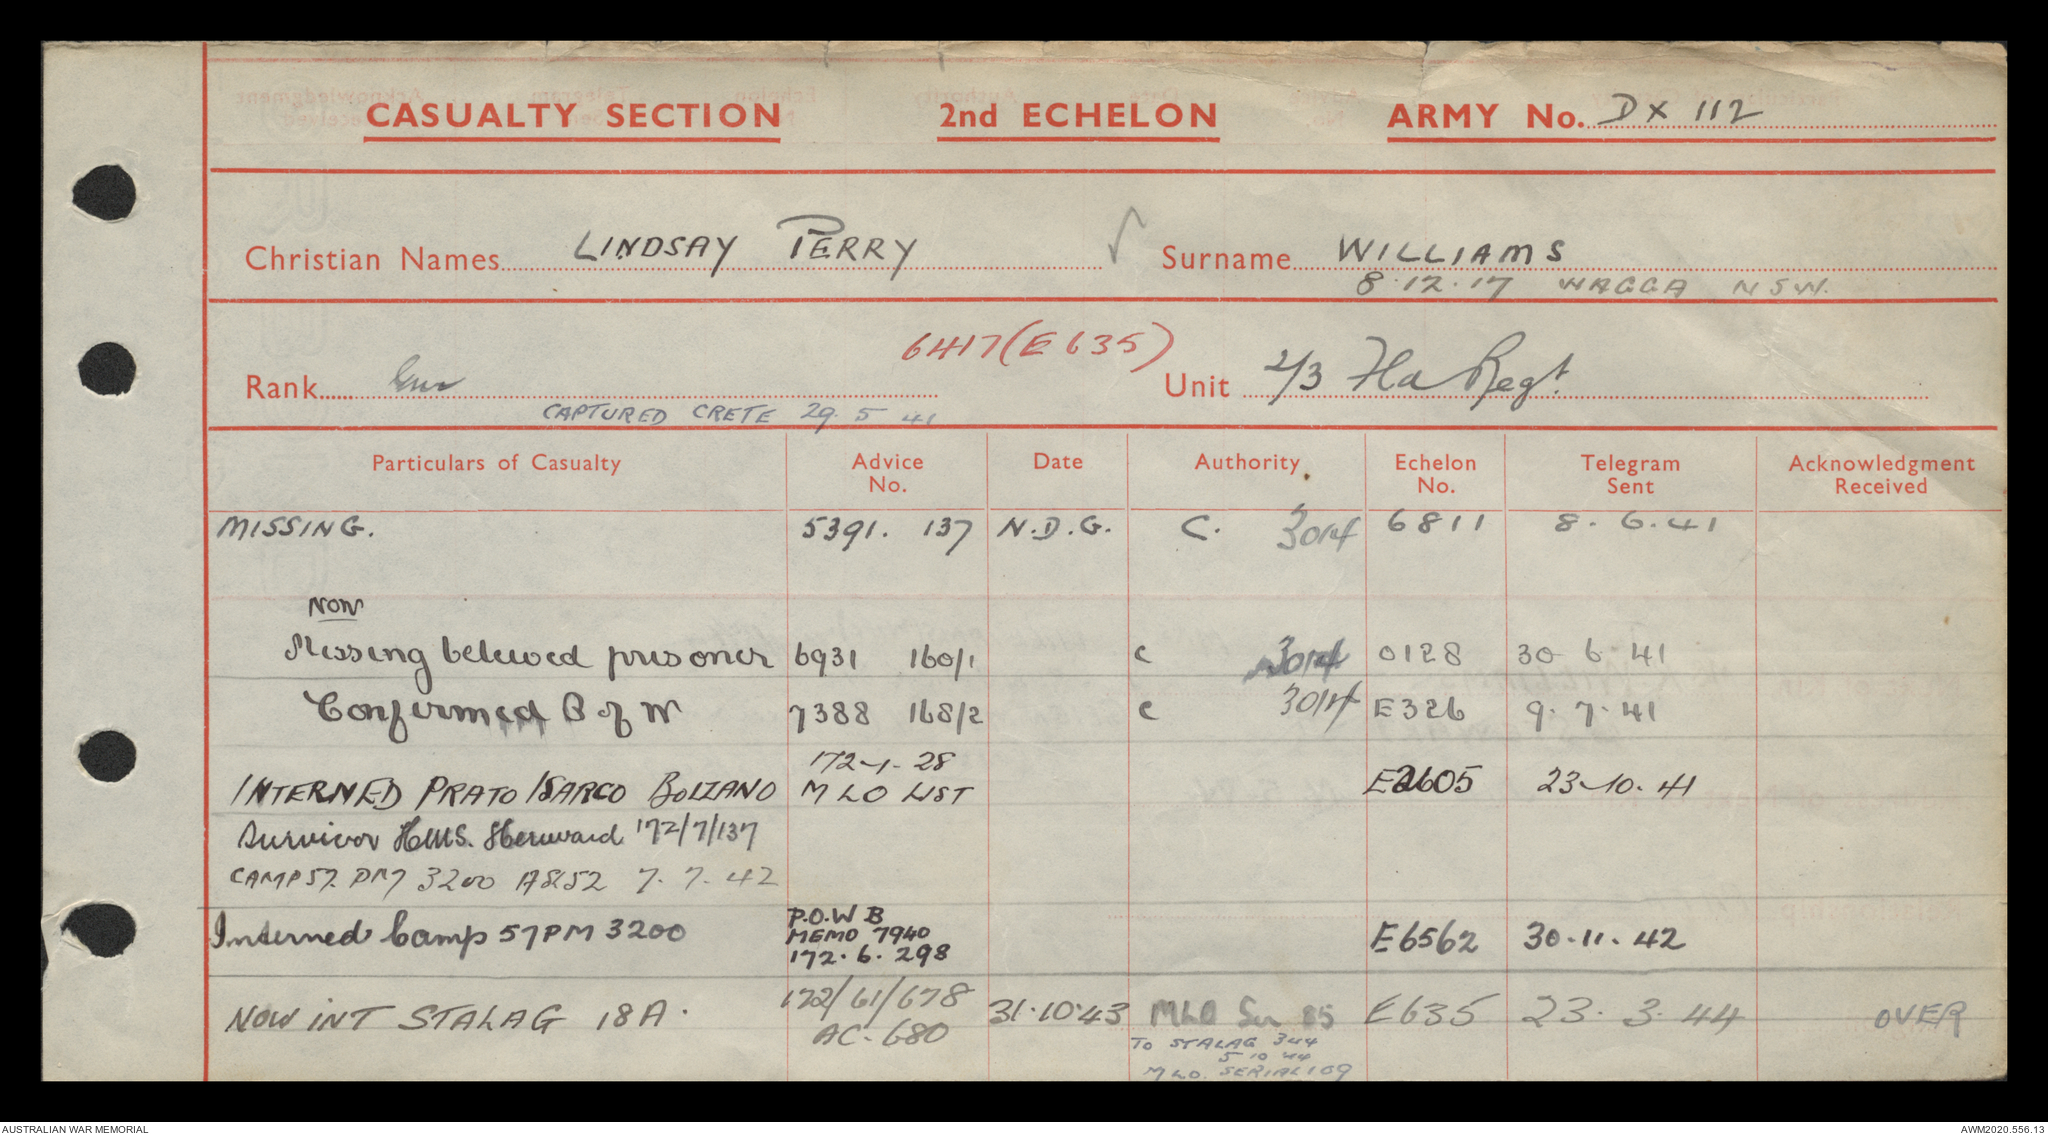 CASUALTY SECTION 2nd ECHELON ARMY No. DX 112
Christian Names LINDSAY PERRY Surname WILLIAMS
8.12.17 WAGGA NSW.
6417 (E 635)
Rank Gnr Unit 2/3 Fld Regt.
CAPTURED CRETE 29.5 41
Particulars of Casualty Advice No. Date Authority Echelon No. Telegram Sent Acknowledgment Received
MISSING. 5391. 137 N.D.G. C. 3014 6811 8.6.41
NOW
Missing believed prisoner 6931 160/1 C 3014 0128 30 6.41
Confirmed P of W 7388 168/2 C 3014 E326 9.7.41
172-1-28
INTERNED PRATO ISARCO BOLZANO MLO LIST E2605 23-10.41
Survivor HMS. Hereward 172/7/137
CAMP 57. PM 3200 A8152 7.7.42
Interned Camp 57 PM 3200 P.O.W B MEMO 7940 172.6.298 E6562 30.11.42
NOW INT STALAG 18A. 172/61/678 31.10.43 MLO Ser 85 E635 23.3.44 OVER
AC. 680
TO STALAG 344
5 10 44
MLO. SERIAL 109
AUSTRALIAN WAR MEMORIAL AWM2020.556.13